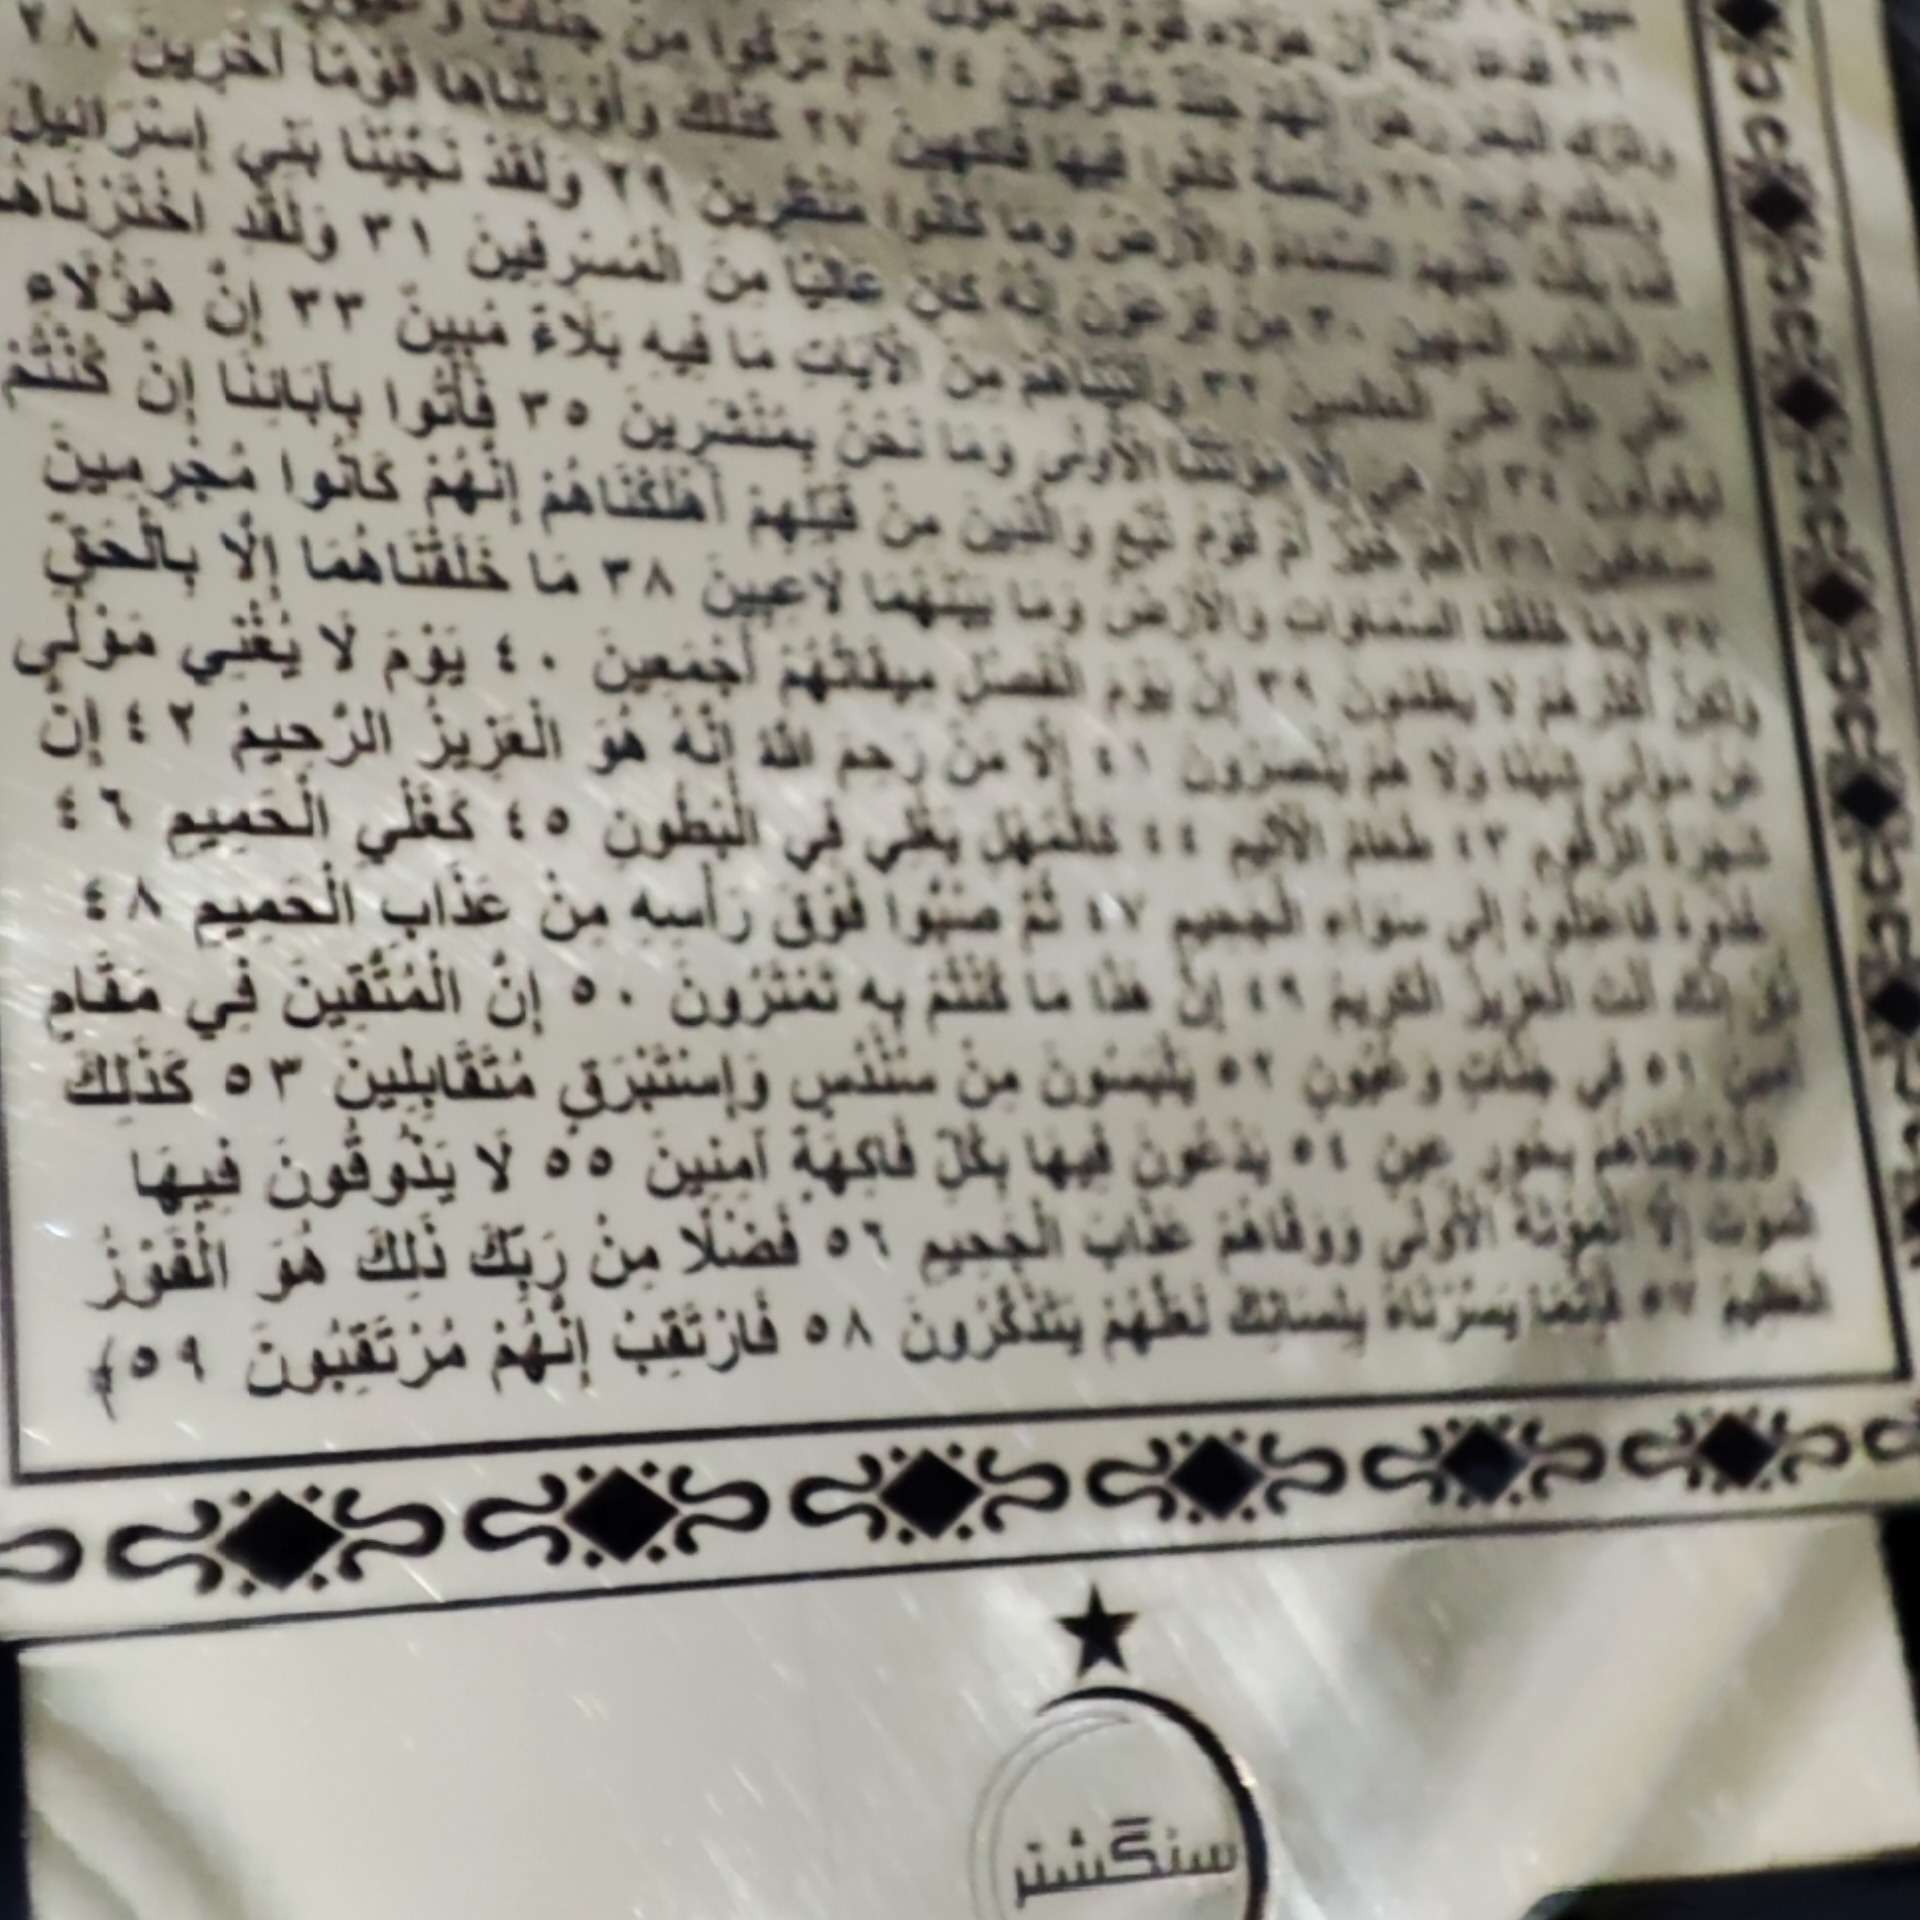 ٢٢ فدعا ربه أن هؤلاء قوم مجرمون
واترك البحر رهوا إنهم جند مغرقون ٢٤ كم تركوا من جنات وعيون
ومقام كريم ٢٦ ونعمة كانوا فيها فاكهين ٢٧ كذلك وأورثناها قوما آخرين ٢٨
فما بكت عليهم السماء والأرض وما كانوا منظرين ٢٩ وَلَقَدْ نَجَّيْنَا بَنِي إِسْرَائِيلَ
من العذاب المهين ٣٠ من فرعون إنه كان عاليًا مِنَ الْمُسْرِفِينَ ٣١ وَلَقَدِ اخْتَرْنَاهُمْ
على علم على العالمين ٣٢ وآتيناهم من الآيات مَا فِيهِ بَلَاءٌ مُبِينٌ ٣٣ إِنَّ هَؤُلَاءِ
ليقولون ٣٤ إن هي إلا موتتنا الأولى وَمَا نَحْنُ بِمُنْشَرِينَ ٣٥ فَأْتُوا بِآبَائِنَا إِنْ كُنْتُمْ
صادقين ٣٦ أهم خير أم قوم تبع والذين مِنْ قَبْلِهِمْ أَهْلَكْنَاهُمْ إِنَّهُمْ كَانُوا مُجْرِمِينَ
٣٧ وما خلقنا السماوات والأرض وَمَا بَيْنَهُمَا لَاعِبِينَ ٣٨ مَا خَلَقْنَاهُمَا إِلَّا بِالْحَقِّ
ولكن أكثرهم لا يعلمون ٣٩ إن يوم الفصل مِيقَاتُهُمْ أَجْمَعِينَ ٤٠ يَوْمَ لَا يُغْنِي مَوْلًى
عن مولى شيئا ولا هم ينصرون ٤١ إلا من رَحِمَ اللَّهُ إِنَّهُ هُوَ الْعَزِيزُ الرَّحِيمُ ٤٢ إِنَّ
شجرة الزقوم ٤٣ طعام الأثيم ٤٤ كالمهل يَغْلِي فِي الْبُطُونِ ٤٥ كَغَلْيِ الْحَمِيمِ ٤٦
خذوه فاعتلوه إلى سواء الجحيم ٤٧ ثُمَّ صُبُّوا فَوْقَ رَأْسِهِ مِنْ عَذَابِ الْحَمِيمِ ٤٨
ذق إنك أنت العزيز الكريم ٤٩ إِنَّ هَذَا مَا كُنْتُمْ بِهِ تَمْتَرُونَ ٥٠ إِنَّ الْمُتَّقِينَ فِي مَقَامٍ
أمين ٥١ في جنات وعيون ٥٢ يَلْبَسُونَ مِنْ سُنْدُسٍ وَإِسْتَبْرَقٍ مُتَقَابِلِينَ ٥٣ كَذَلِكَ
وزوجناهم بحور عين ٥٤ يَدْعُونَ فِيهَا بِكُلِّ فَاكِهَةٍ آمِنِينَ ٥٥ لَا يَذُوقُونَ فِيهَا
الموت إلا الموتة الأولى ووقاهم عَذَابَ الْجَحِيمِ ٥٦ فَضْلًا مِنْ رَبِّكَ ذَلِكَ هُوَ الْفَوْزُ
العظيم ٥٧ فإنما يَسَّرْنَاهُ بِلِسَانِكَ لَعَلَّهُمْ يَتَذَكَّرُونَ ٥٨ فَارْتَقِبْ إِنَّهُمْ مُرْتَقِبُونَ ٥٩﴾
سنگشتر